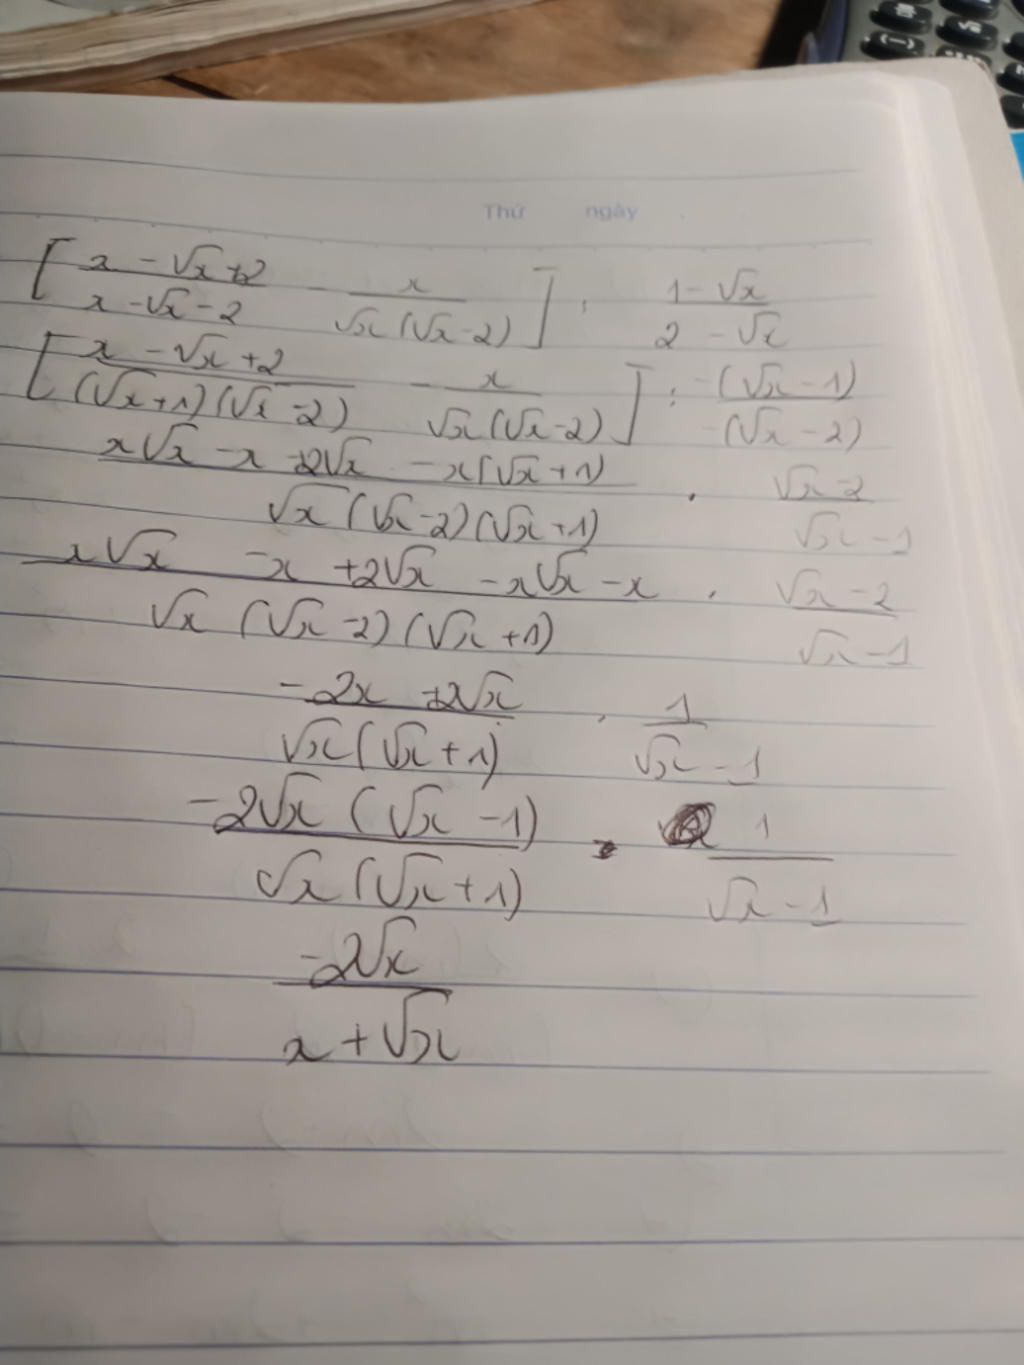 Thứ ngày
[ (x - √x + 2)/(x - √x - 2) - x/(√x(√x - 2)) ] : (1 - √x)/(2 - √x)
[ (x - √x + 2)/((√x + 1)(√x - 2)) - x/(√x(√x - 2)) ] : -(√x - 1)/-(√x - 2)
(x√x - x + 2√x - x(√x + 1))/(√x(√x - 2)(√x + 1)) . (√x - 2)/(√x - 1)
(x√x - x + 2√x - x√x - x)/(√x(√x - 2)(√x + 1)) . (√x - 2)/(√x - 1)
(-2x + 2√x)/(√x(√x + 1)) . 1/(√x - 1)
(-2√x(√x - 1))/(√x(√x + 1)) . 1/(√x - 1)
(-2√x)/(x + √x)